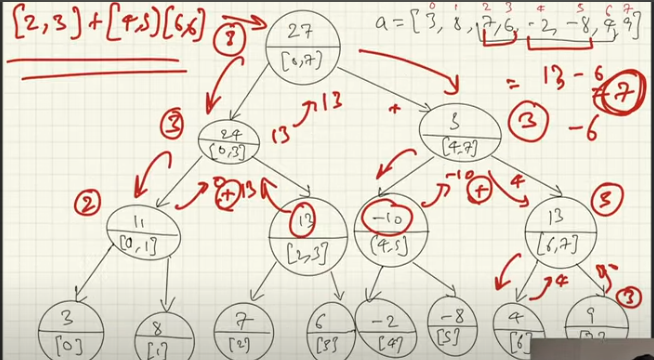 [2,3]+[4,5][6,6]
a=[3, 8, 7,6, -2, -8, 4, 9]
0 1 2 3 4 5 6 7
27
[0,7]
①
= 13 - 6
= 7
13
13
③
24
[0,3]
+
3
[4,7]
③
-6
②
11
[0,1]
0
+
13
13
[2,3]
-10
[4,5]
-10
+
4
13
[6,7]
③
4
③
3
[0]
8
[1]
7
[2]
6
[3]
-2
[4]
-8
[5]
4
[6]
9